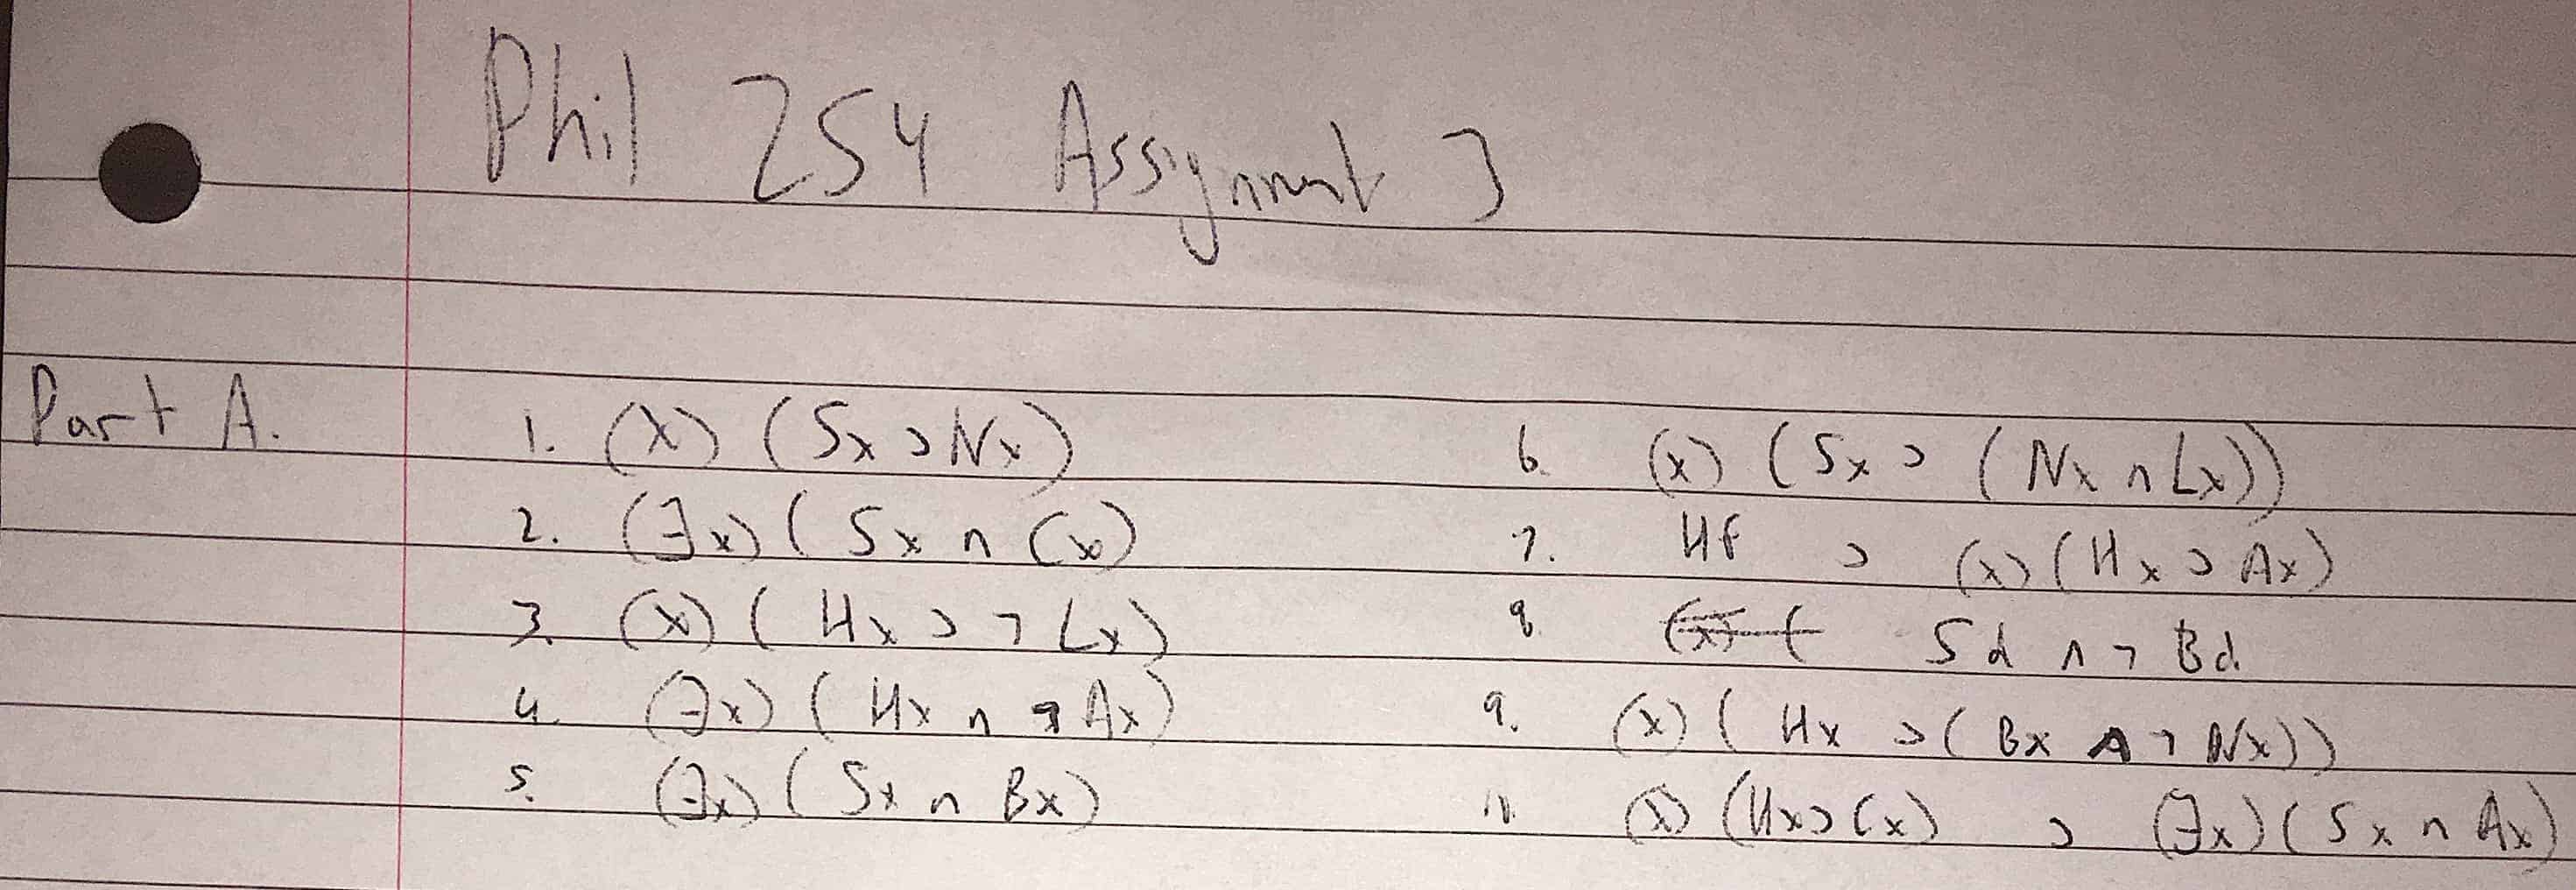 Phil 254 Assignment 3
Part A.
1. (x) (Sx ⊃ Nx)
2. (∃x) ( Sx ∩ Cx)
3. (x) ( Hx ⊃ ¬ Lx)
4. (∃x) ( Hx ∩ ¬ Ax)
5. (∃x) ( Sx ∩ Bx)
6. (x) ( Sx ⊃ ( Nx ∩ Lx))
7. Hf ⊃ (x) ( Hx ⊃ Ax)
8. Sd ∩ ¬ Bd
9. (x) ( Hx ⊃ ( Bx ∩ ¬ Nx))
10. (x) (Hx ⊃ Cx) ⊃ (∃x) ( Sx ∩ Ax)